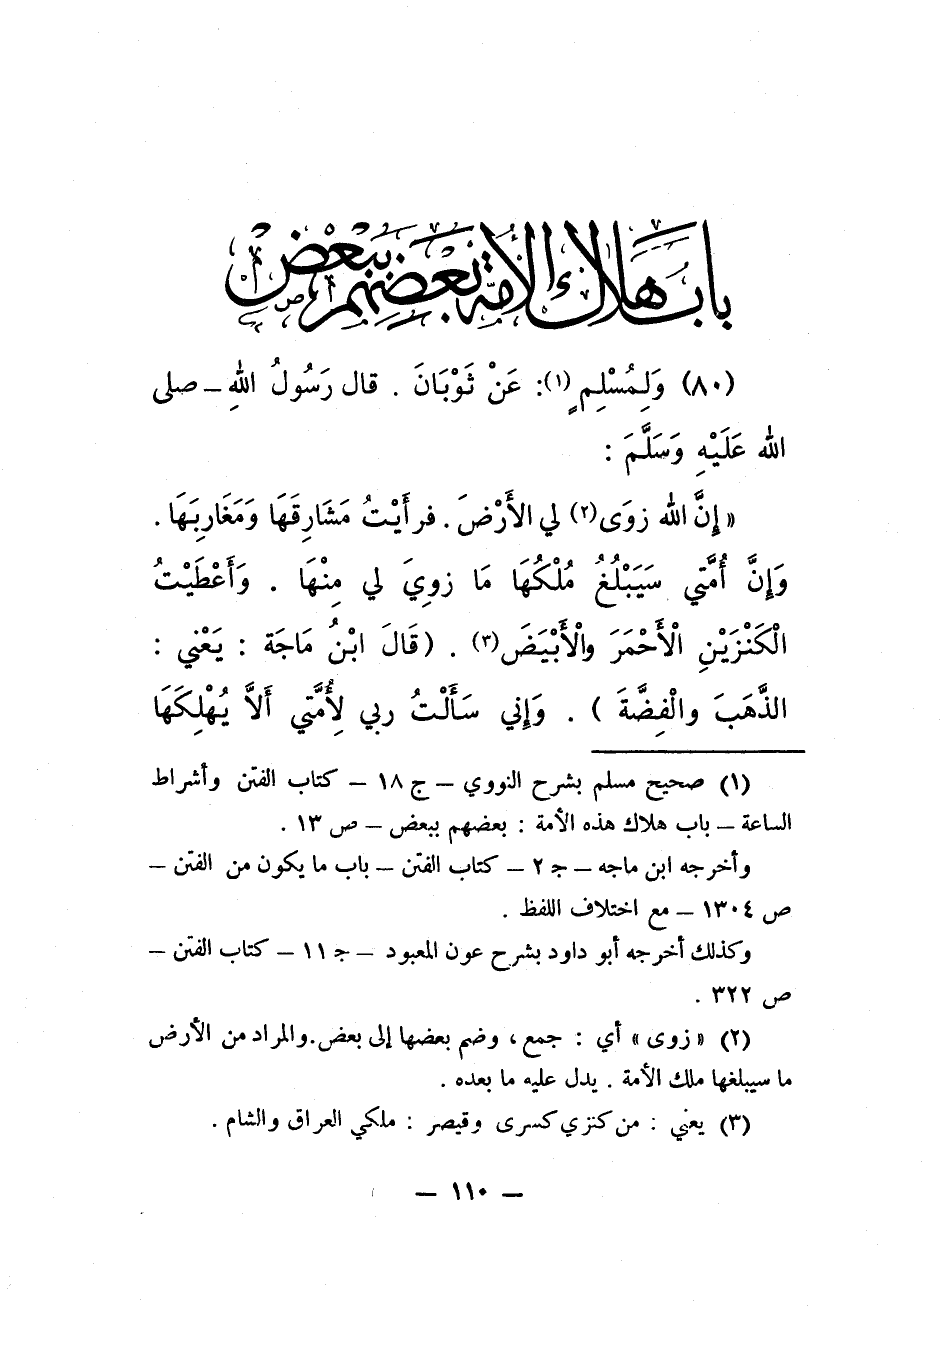 باب هلاك الأمة بعضهم ببعض
(٨٠) وَلِمُسْلِمٍ(١): عَنْ ثَوْبَانَ . قال رَسُولُ اللهِ ــ صلى
الله عَلَيْهِ وَسَلَّمَ :
« إِنَّ الله زوَى(٢) لي الأَرْضَ . فرأَيْتُ مَشَارِقَهَا وَمَغَارِبَهَا .
وَإِنَّ أُمَّتي سَيَبْلُغُ مُلْكُهَا مَا زوِيَ لي مِنْهَا . وَأَعْطَيْتُ
الْكَنْزَيْنِ الْأَحْمَرَ والْأَبْيَضَ(٣) . (قَالَ ابْنُ مَاجَة : يَعْني :
الذَّهَبَ والْفِضَّةَ ) . وَإِني سَأَلْتُ ربي لِأُمَّتي أَلاَّ يُهْلِكَهَا
(١) صحيح مسلم بشرح النووي ــ ج ١٨ ــ كتاب الفتن وأشراط
الساعة ــ باب هلاك هذه الأمة : بعضهم ببعض ــ ص ١٣ .
وأخرجه ابن ماجه ــ جـ ٢ ــ كتاب الفتن ــ باب ما يكون من الفتن ــ
ص ١٣٠٤ ــ مع اختلاف اللفظ .
وكذلك أخرجه أبو داود بشرح عون المعبود ــ جـ ١١ ــ كتاب الفتن ــ
ص ٣٢٢ .
(٢) « زوى » أي : جمع ، وضم بعضها إلى بعض.والمراد من الأرض
ما سيبلغها ملك الأمة . يدل عليه ما بعده .
(٣) يعني : من كنزي كسرى وقيصر : ملكي العراق والشام .
ــ ١١٠ ــ